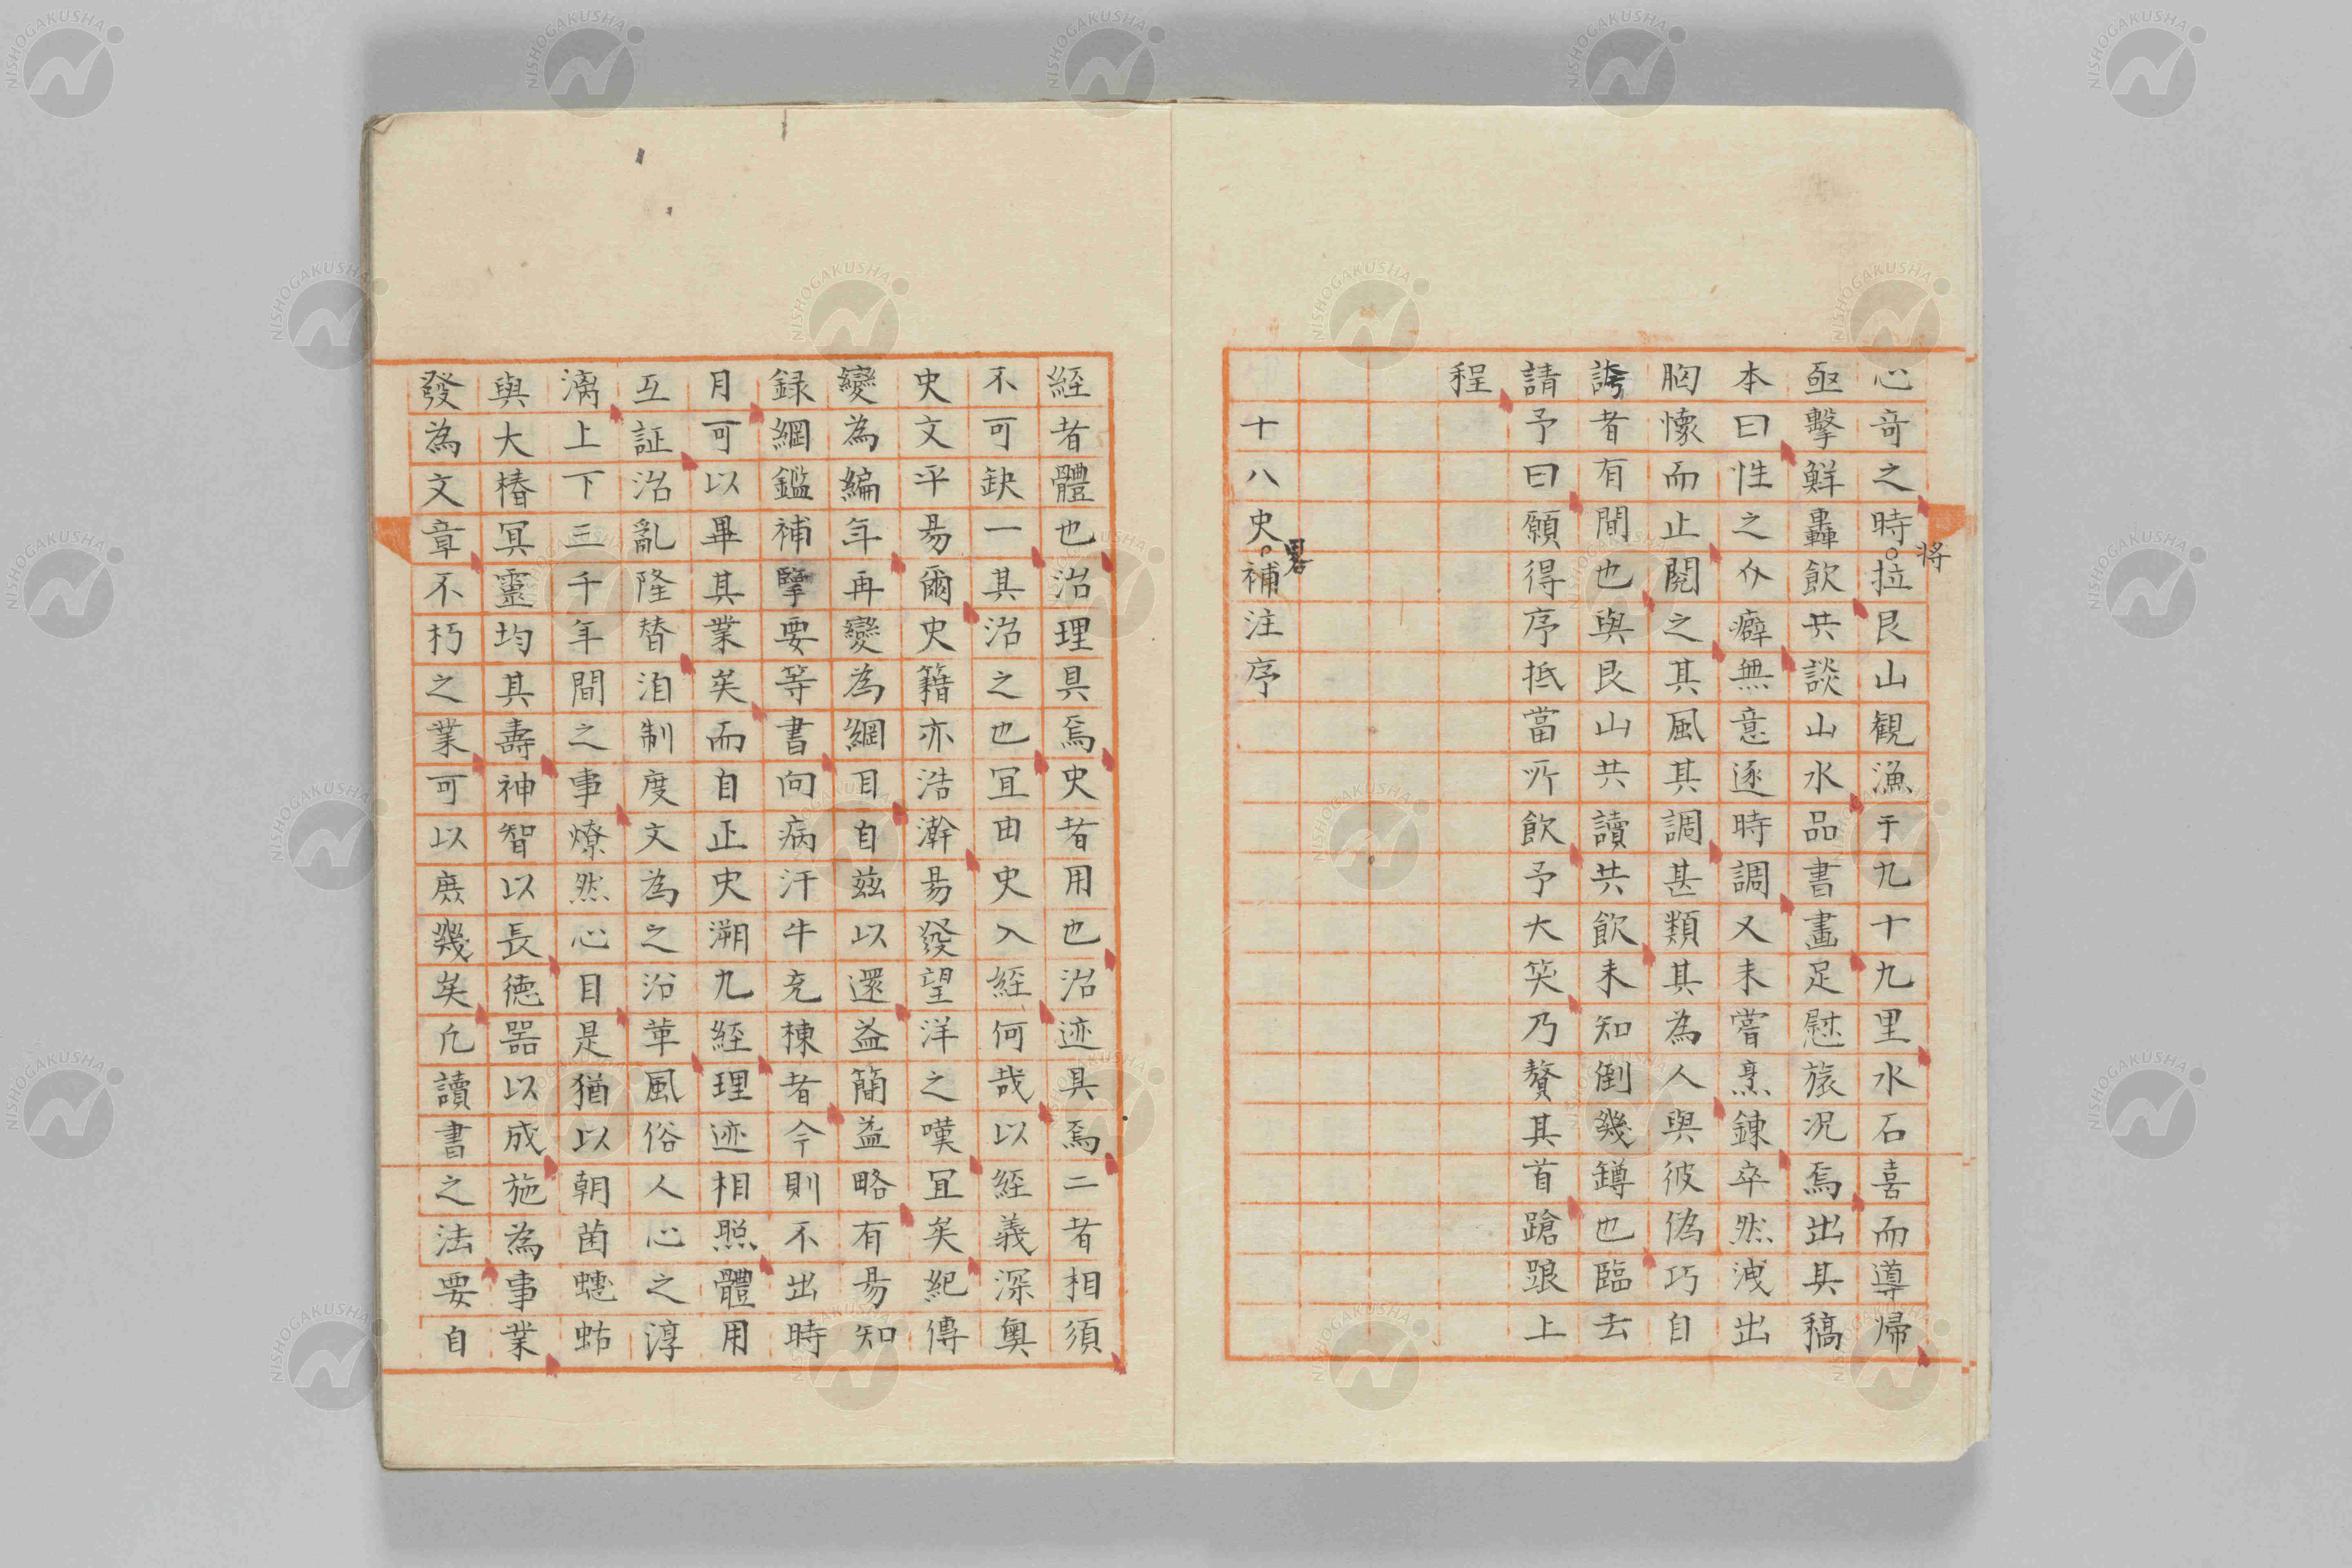 心奇之時拉艮山観漁于九十九里水石喜而導帰
将
亟擊鮮轟飲共談山水品書畫足慰旅况焉出其稿
本曰性之仆癖無意逐時調又未嘗烹錬卒然洩出
胸懐而止閲之其風其調甚類其為人與彼偽巧自
誇者有間也與艮山共讀共飲未知倒幾罇也臨去
請予曰願得序抵當所飲予大笑乃贅其首蹌踉上
程
十八史補注序
畧
経者體也治理具焉史者用也治迹具焉二者相須
不可缺一其治之也宜由史入経何哉以経義深奥
史文平易爾史籍亦浩澣易發望洋之嘆宜矣紀傳
變為編年再變為綱目自兹以還益簡益略有易知
録綱鑑補擥要等書向病汗牛充棟者今則不出時
月可以畢其業矣而自正史溯九経理迹相照體用
互証治亂隆替洎制度文為之沿革風俗人心之淳
漓上下三千年間之事燎然心目是猶以朝菌蟪蛄
與大椿冥靈均其壽神智以長徳器以成施為事業
發為文章不朽之業可以庶幾矣凡讀書之法要自
NISHOGAKUSHA